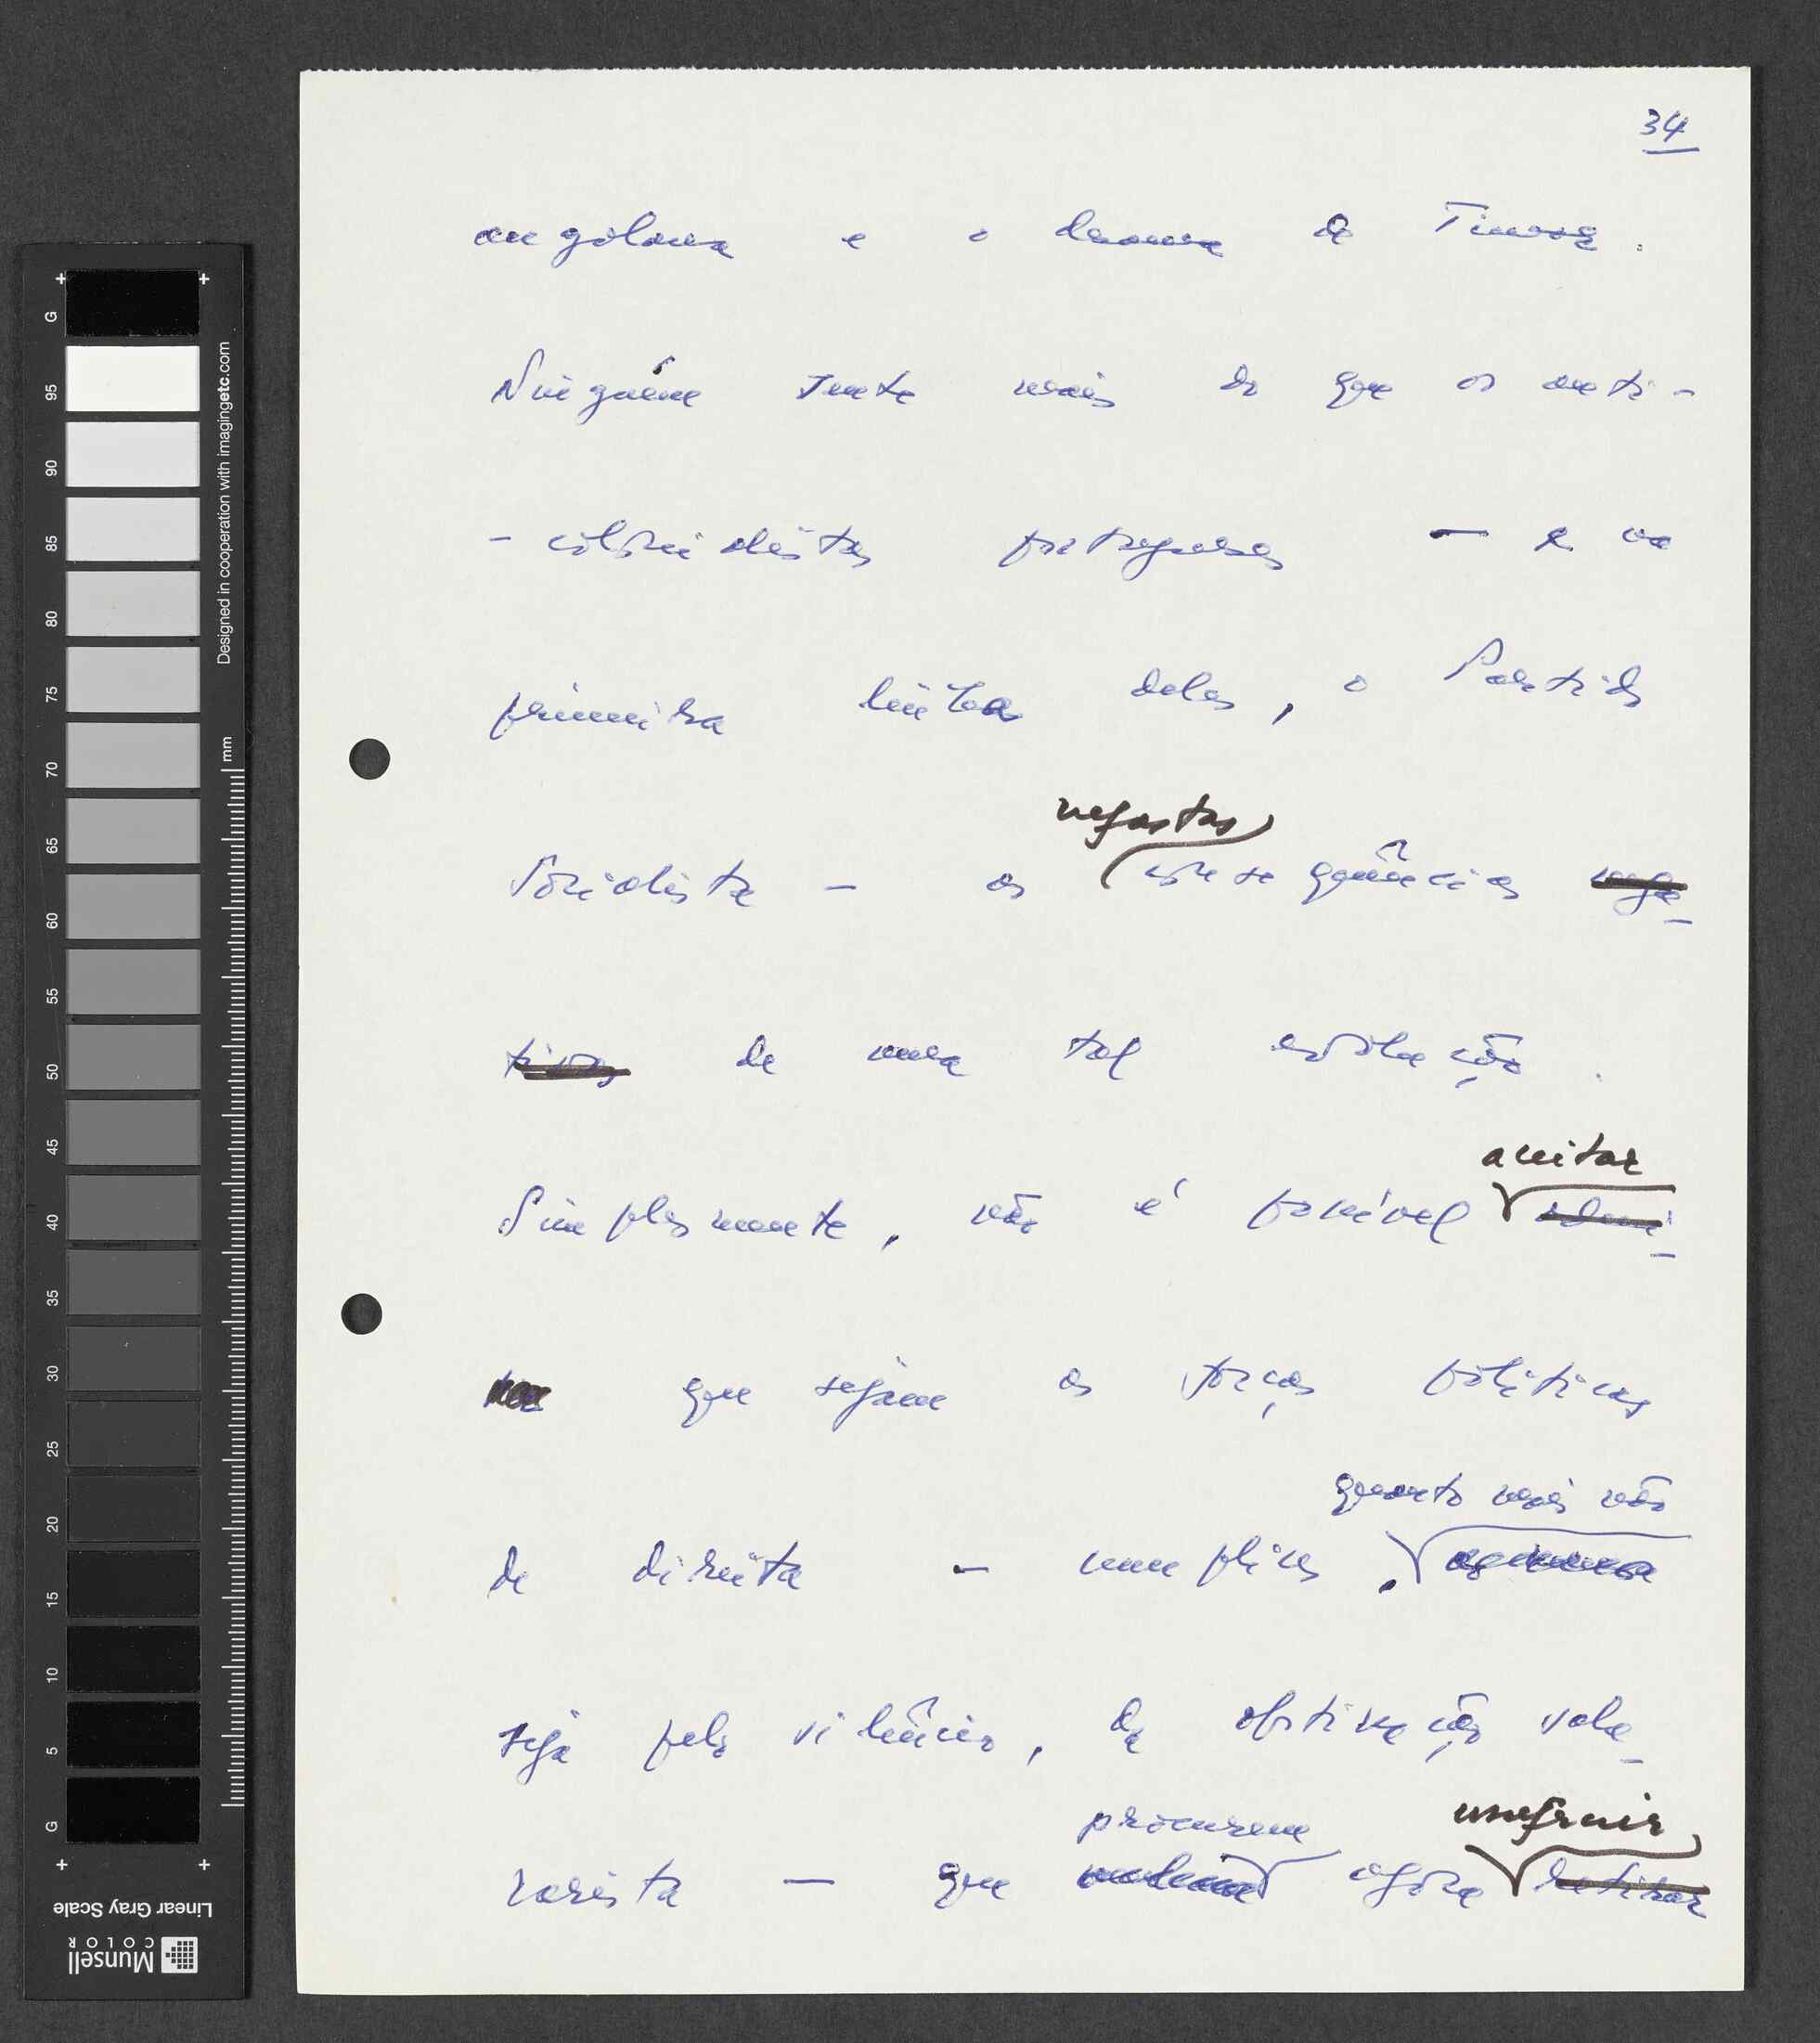 34
angolana e o drama de Timor.
Ninguém sente mais do que os anti-
- colonialistas portugueses — e na
primeira linha deles, o Partido
nefastas
Socialista — as consequências nega-
tivas de uma tal evolução.
aceitar
Simplesmente, não é possível admi-
tir que sejam as forças políticas
quanto mais não
de direita — cumplices,
seja pelo silêncio, da obstinação sala-
procurem usufruir
zarista — que agora retirar
G
95
90
85
80
75
70
65
60
55
50
45
40
35
30
25
20
15
10
5
G
Designed in cooperation with imagingetc.com
mm
Linear Gray Scale
Munsell
COLOR